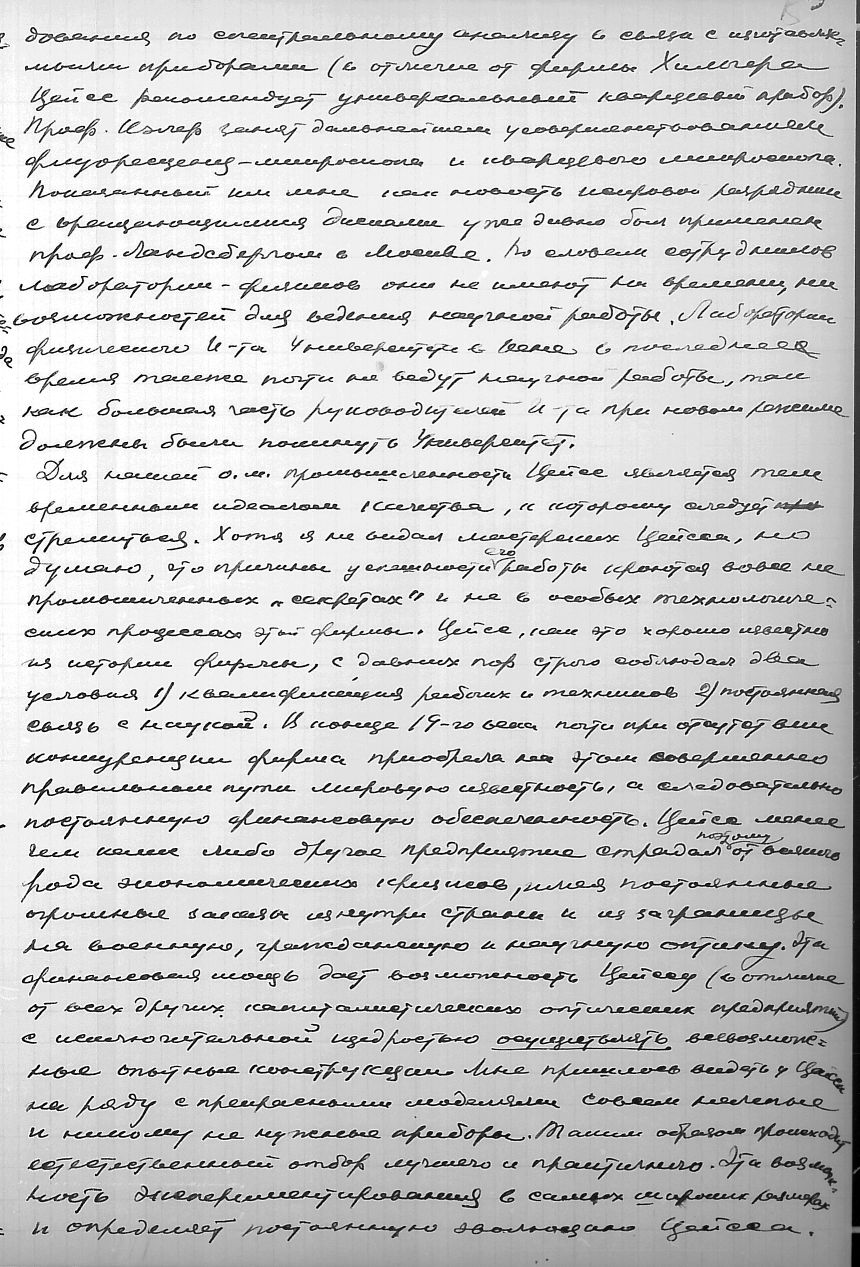 дования по спектральному анализу в связи с изготовляе-
мыми приборами (в отличие от фирмы Хильгера
Цейсс рекомендует универсальный кварцевый прибор).
Проф. Кэлер занят дальнейшим усовершенствованием
флуоресценция-микроскопа и кварцевого микроскопа.
Показанный им мне как новость искровой разрядник
с вращающимися дисками уже давно был применен
проф. Ландсбергом в Москве. По словам сотрудников
лаборатории-физиков они не имеют ни времени, ни
возможностей для ведения научной работы. Лаборатории
физического И-та Университета в Иене в последнее
время также почти не ведут научной работы, так
как большая часть руководителей И-та при новом режиме
должны были покинуть Университет.
Для нашей о.м. промышленности Цейсс является тем
временным идеалом качества, к которому следует
стремиться. Хотя я не видал мастерских Цейсса, но
думаю, что причины успешности его работы кроются вовсе не
промышленных „секретах" и не в особых технологиче-
ских процессах этой фирмы. Цейсс, как это хорошо известно
из истории фирмы, с давних пор строго соблюдал два
условия 1) квалификация рабочих и техников 2) постоянная
связь с наукой. В конце 19-го века почти при отсутствии
конкуренции фирма приобрела на этом совершенно
правильном пути мировую известность, а следовательно
постоянную финансовую обеспеченность. Цейсс менее
чем какое либо другое предприятие страдал поэтому от всякого
рода экономических кризисов, имея постоянные
огромные заказы изнутри страны и из заграницы
на военную, гражданскую и научную оптику. Эта
финансовая мощь дает возможность Цейссу (в отличие
от всех других капиталистических оптических предприятий)
с исключительной щедростью осуществлять всевозмож-
ные опытные конструкции. Мне пришлось видеть у Цейсса
на ряду с прекрасными моделями совсем нелепые
и никому не нужные приборы. Таким образом происходит
естественный отбор лучшего и практичного. Эта возмож-
ность экспериментирования в самых широких размерах
и определяет постоянную эволюцию Цейсса.